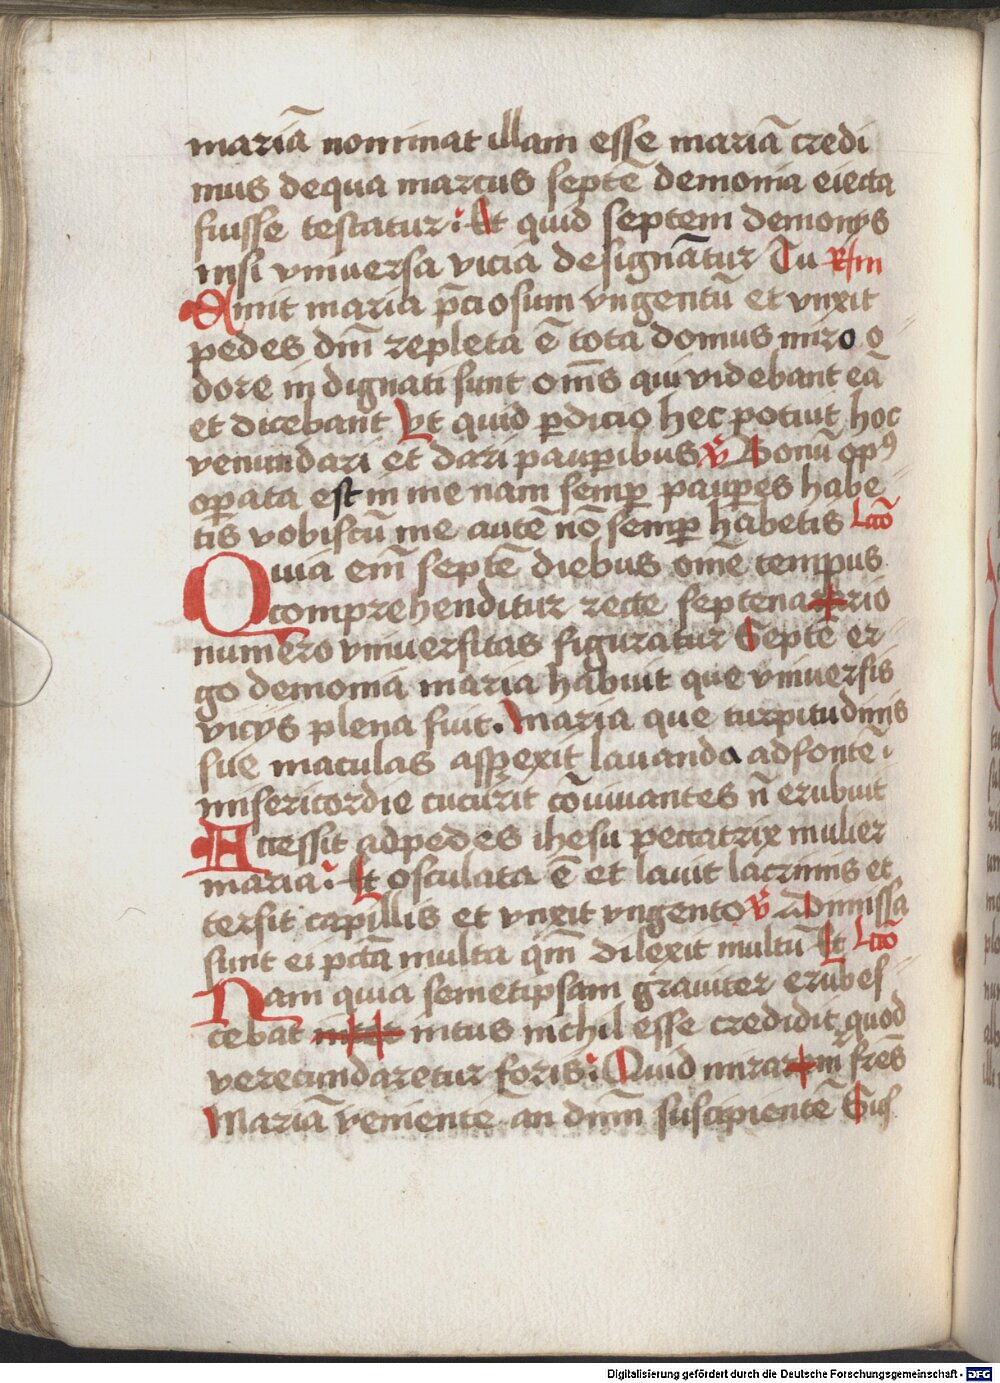 mariā nominat illam esse mariā credi
mus dequa marcus septē demonia eiecta
fuisse testatur : Et quid septem demonys
nisi vniuersa vicia designātur Tu
Emit maria p̄ciosum vngentū et vnxit
pedes dm̄ repleta ē tota domus miro o
dore in dignati sunt om̄s qui videbant eā
et dicebant Vt quid ꝑdicio hec potuit hoc
venundari et dari pauꝑibus ꝟ Bonū opꝰ
oꝑata est in me nam semꝑ pauꝑes habe
tis vobiscū me autē nō semꝑ habetis Lcō
Quia em̄ septē diebus om̄e tempus
comprehenditur recte septena rio
numero vniuersitas figuratur Septē er
go demonia maria habuit que vniuersis
vicys plena fuit. Maria que turpitudinis
sue maculas aspexit lauanda adfontē
misericordie cucurit cōuiuantes n̄ erubuit
Accessit adpedes ihesu peccatrix mulier
maria : Et osculata ē et lauit lacrimis et
tersit capillis et vnxit vngento ꝟ Admissa
sunt ei pctā multa qm̄ dilexit multū Et Lcō
Nam quia semetipsam grauiter erubes
cebat intus nichil esse credidit quod
verecundaretur foris : Quid mira m̄r frēs
Mariā veniente an dnm̄ suscipientē Sus
Digitalisierung gefördert durch die Deutsche Forschungsgemeinschaft - DFG